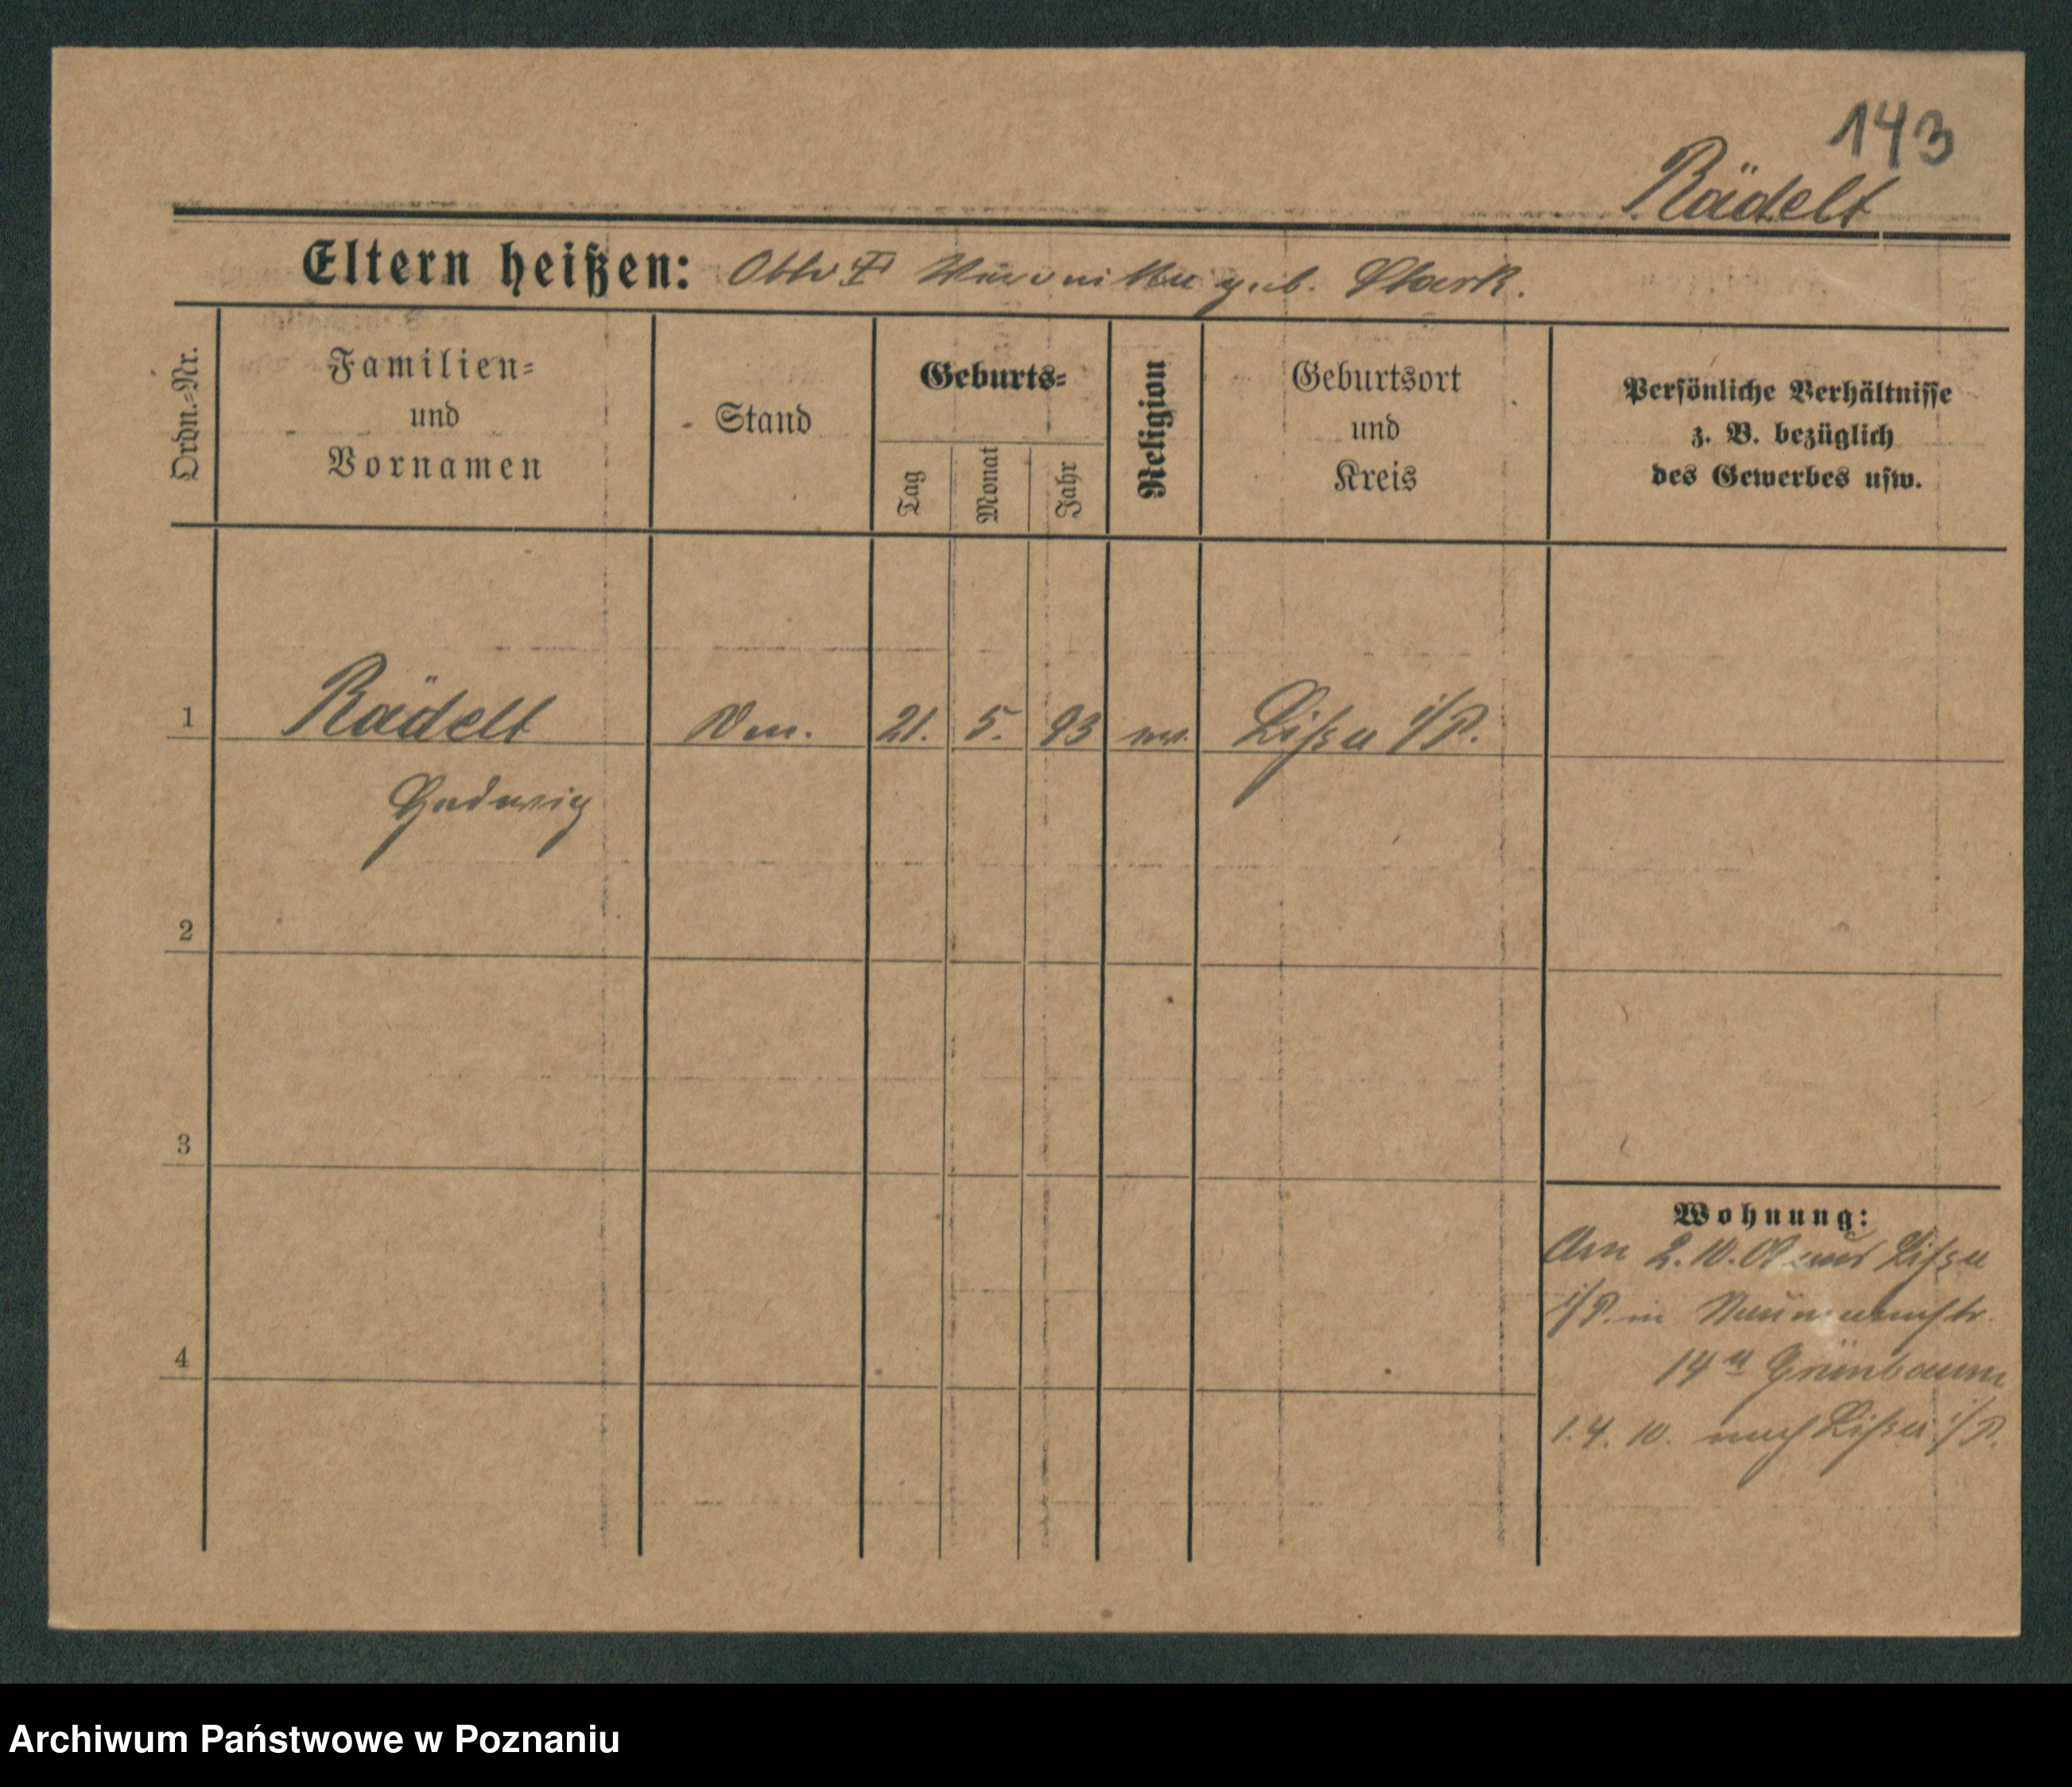 143
Rädelt
Eltern heißen: Otto geb. Stark.
Ordn.-Nr.
Familien-
und
Vornamen
Stand
Geburts-
Tag
Monat
Jahr
Religion
Geburtsort
und
Kreis
Persönliche Verhältnisse
z. B. bezüglich
des Gewerbes usw.
1 Rädelt 21. 5. 93 Lissa i/P.
Hedwig
2
3
4
Wohnung:
Am 2.10.08 aus Lissa
i/P. in Naumannstr.
14 a Grünbaum
1.4.10. nach Lissa i/P.
Archiwum Państwowe w Poznaniu